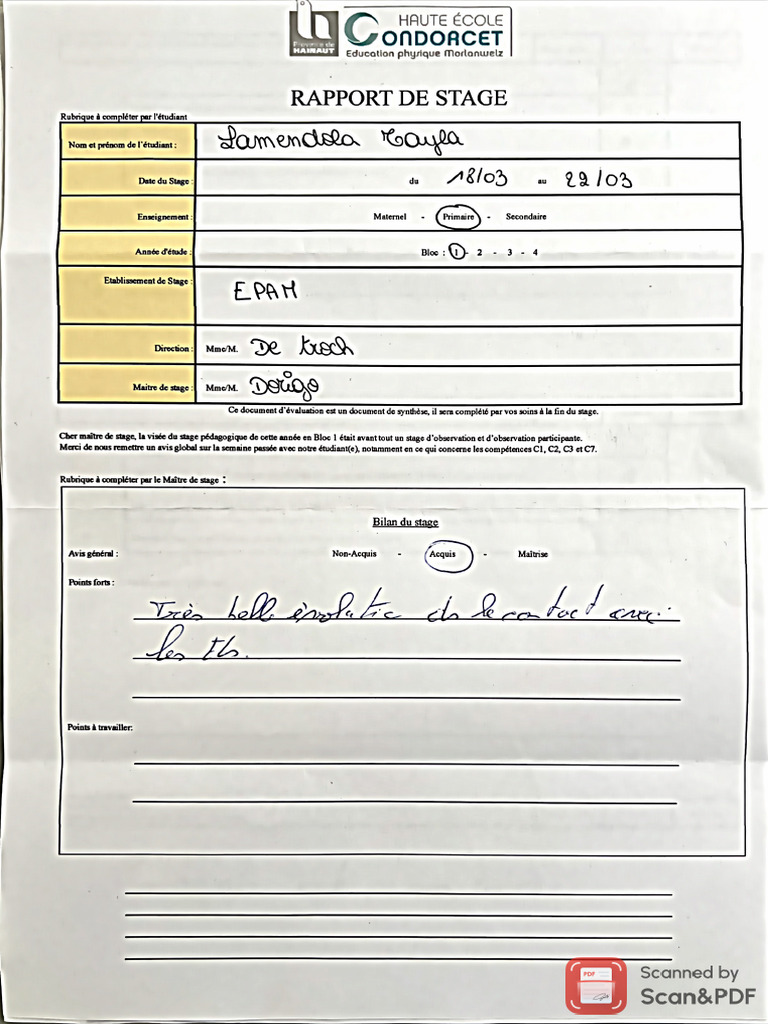 Province de
HAINAUT
HAUTE ÉCOLE
CONDORCET
Education physique Morlanwelz
RAPPORT DE STAGE
Rubrique à compléter par l'étudiant
Nom et prénom de l'étudiant : Lamendola Tayla
Date du Stage : du 18/03 au 22/03
Enseignement : Maternel - Primaire - Secondaire
Année d'étude : Bloc : 1 - 2 - 3 - 4
Etablissement de Stage : EPAM
Direction : Mme/M. De troch
Maitre de stage : Mme/M. Dorigo
Ce document d'évaluation est un document de synthèse, il sera complété par vos soins à la fin du stage.
Cher maître de stage, la visée du stage pédagogique de cette année en Bloc 1 était avant tout un stage d'observation et d'observation participante.
Merci de nous remettre un avis global sur la semaine passée avec notre étudiant(e), notamment en ce qui concerne les compétences C1, C2, C3 et C7.
Rubrique à compléter par le Maître de stage :
Bilan du stage
Avis général : Non-Acquis - Acquis - Maîtrise
Points forts :
Très belle évolution ds le contact avec
les
Points à travailler:
PDF
Scanned by
Scan&PDF